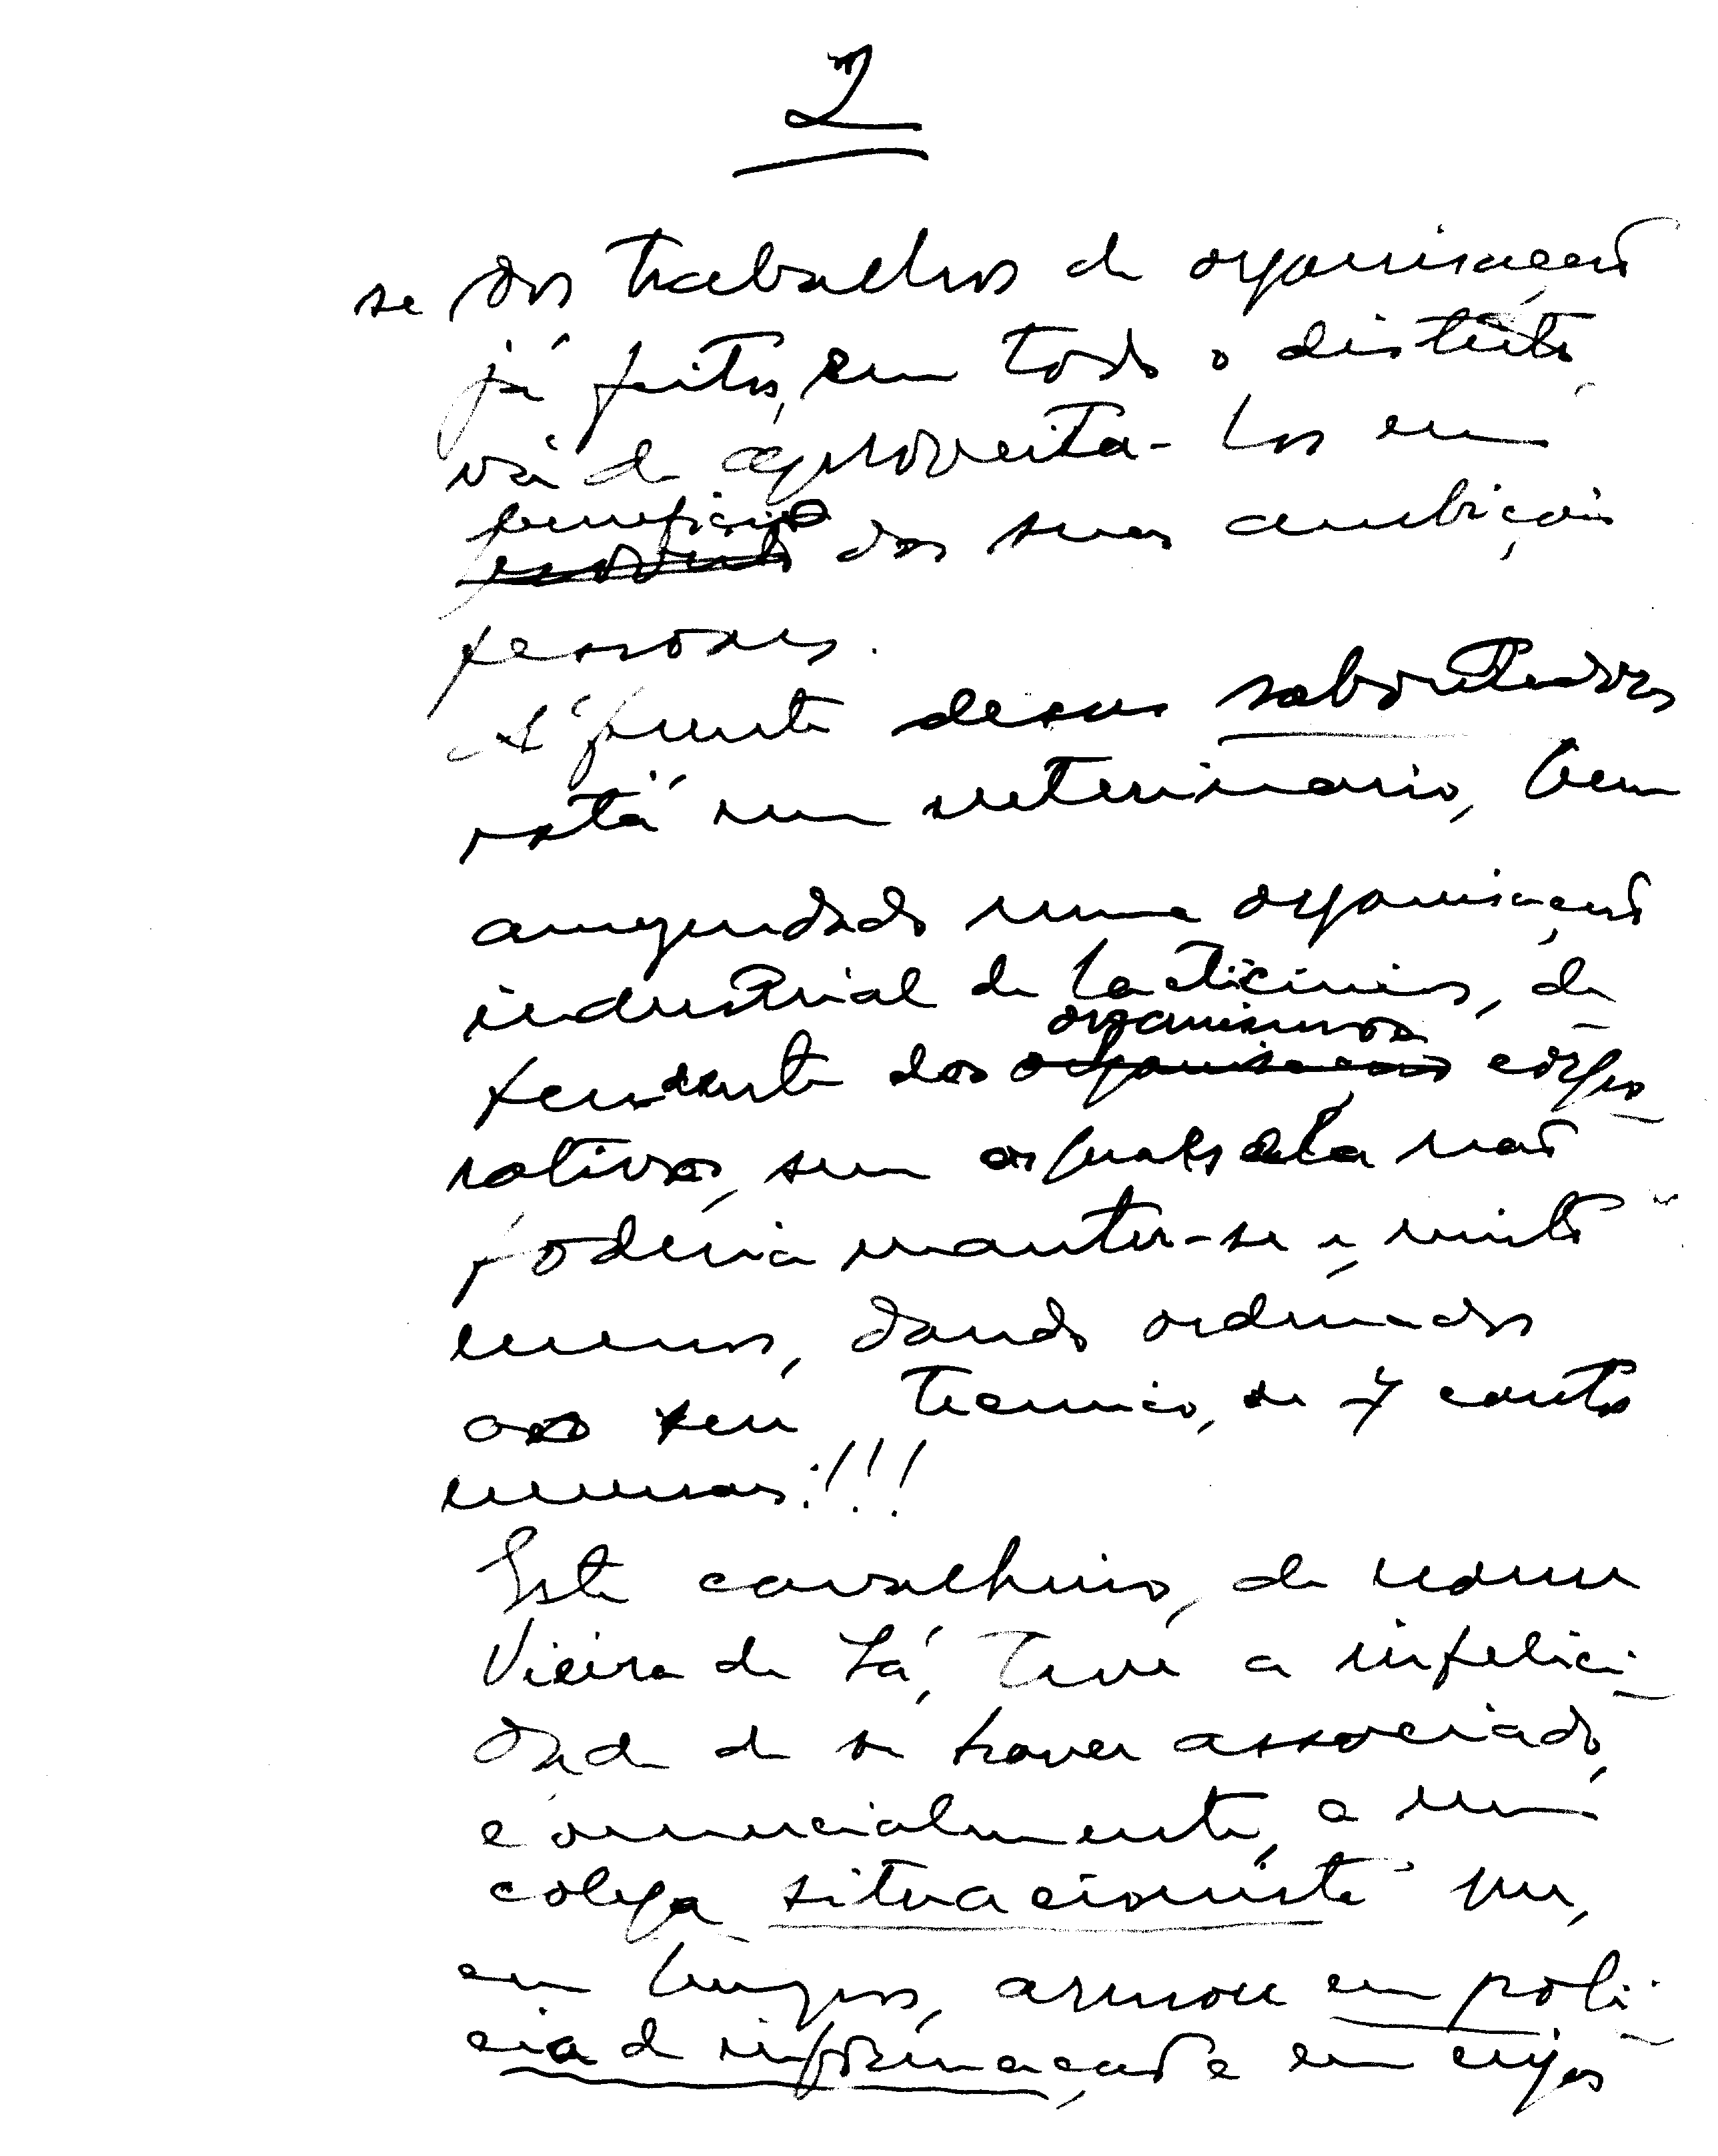 2
se dos trabalhos de organisação
já feitos, em todo o distrito,
vá de aproveita-los em
beneficio
proveito das suas ambições
pessoaes.
Á frente desses saboteadores
está um veterinario, bem
amezendado numa organisação
industrial de lacticinios, de-
organismos
pendente dos organisações corpo-
rativos, sem os quaes ela não
poderia manter-se e, muito
menos, dando ordenados
ao seu tecnico, de 7 contos
mensaes!!!
Este cavalheiro, de nome
Vieira de Sá, teve a infelici-
dade de se haver associado,
comercialmente, a um
colega situacionista que,
em tempos, armou em poli-
cia de informação e em cujos